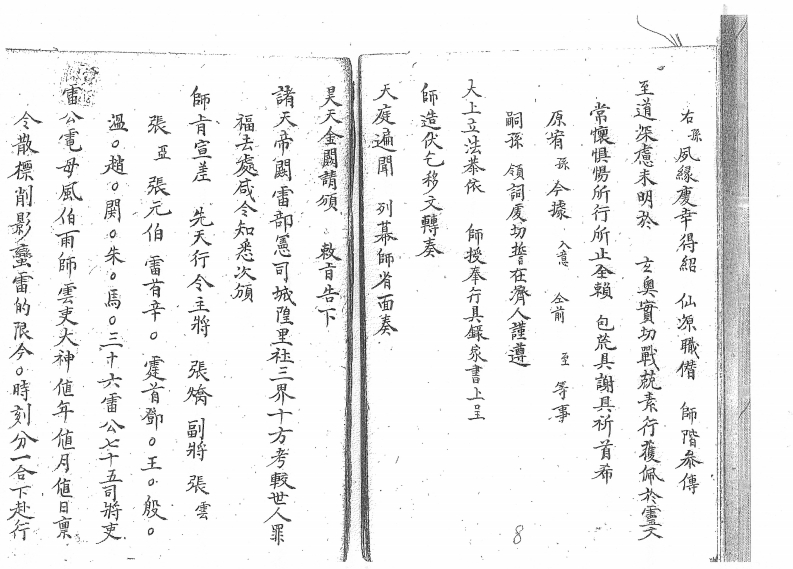 右孫夙緣慶幸得紹 仙源職僭 師階叅傳
至道深慮未明於 玄奧實切戰兢素行獲佩於靈文
常懷惧惕所行所止全賴 包荒具謝具祈首希
原宥孫今據 入意 仝前 至 等事
嗣孫 領詞虔切誓在濟人謹遵
大上立法恭依 師授奉行具錄家書上呈
師造伏乞移文轉奏
天庭遍聞 列幕師省面奏
昊天金闕請頒 敕旨告下
諸天帝闕雷部憲司城隍里社三界十方考較世人罪
福去處咸令知悉次頒
師旨宣差 先天行令主將 張 副將 張雲
張亞 張元伯 雷首辛。霆首鄧。王。殷。
溫。趙。関。朱。馬。三十六雷公七十五司將吏
雷公電母風伯雨師雲吏大神值年值月值日稟
令散標削影蠻雷的限今。時刻分一合下赴行
8